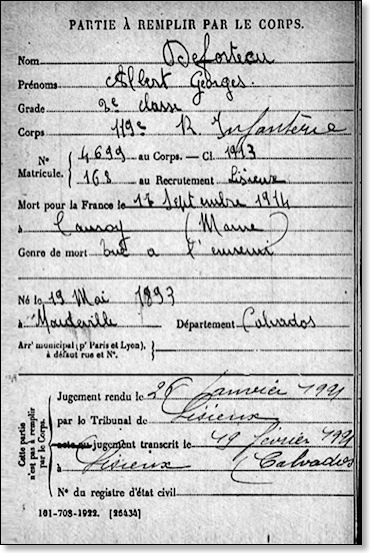 PARTIE À REMPLIR PAR LE CORPS.
Nom Deforteau
Prénoms Albert Georges.
Grade 2e classe
Corps 119e R. Infanterie
N° Matricule. 4699 au Corps. — Cl. 1913
168 au Recrutement Lisieux
Mort pour la France le 17 Septembre 1914
à Cauroy (Marne)
Genre de mort tué a l'ennemi
Né le 19 Mai 1893
à Mandeville Département Calvados
Arrt municipal (pr Paris et Lyon), à défaut rue et N°.
Cette partie n'est pas à remplir par le Corps.
Jugement rendu le 26 janvier 1921
par le Tribunal de Lisieux
acte ou jugement transcrit le 19 février 1921
à Lisieux (Calvados)
N° du registre d'état civil
101-708-1922. [26434]